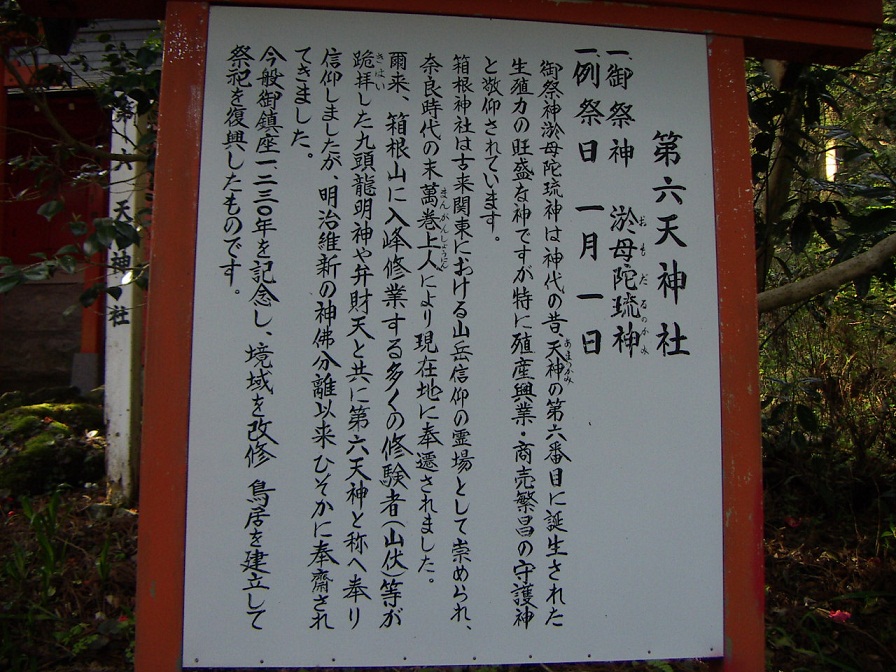 第六天神社
一、御祭神 淤母陀琉神
おもだるのかみ
一、例祭日 一月一日
御祭神淤母陀琉神は神代の昔、天神の第六番目に誕生された
あまつかみ
生殖力の旺盛な神ですが特に殖産興業・商売繁昌の守護神
と敬仰されています。
箱根神社は古来関東における山岳信仰の霊場として崇められ、
奈良時代の末萬巻上人により現在地に奉遷されました。
まんがんしょうにん
爾来、箱根山に入峰修業する多くの修験者(山伏)等が
跪拝した九頭龍明神や弁財天と共に第六天神と称へ奉り
きはい
信仰しましたが、明治維新の神佛分離以来ひそかに奉齋され
てきました。
今般御鎮座一、二三〇年を記念し、境域を改修 鳥居を建立して
祭祀を復興したものです。
第六天神社